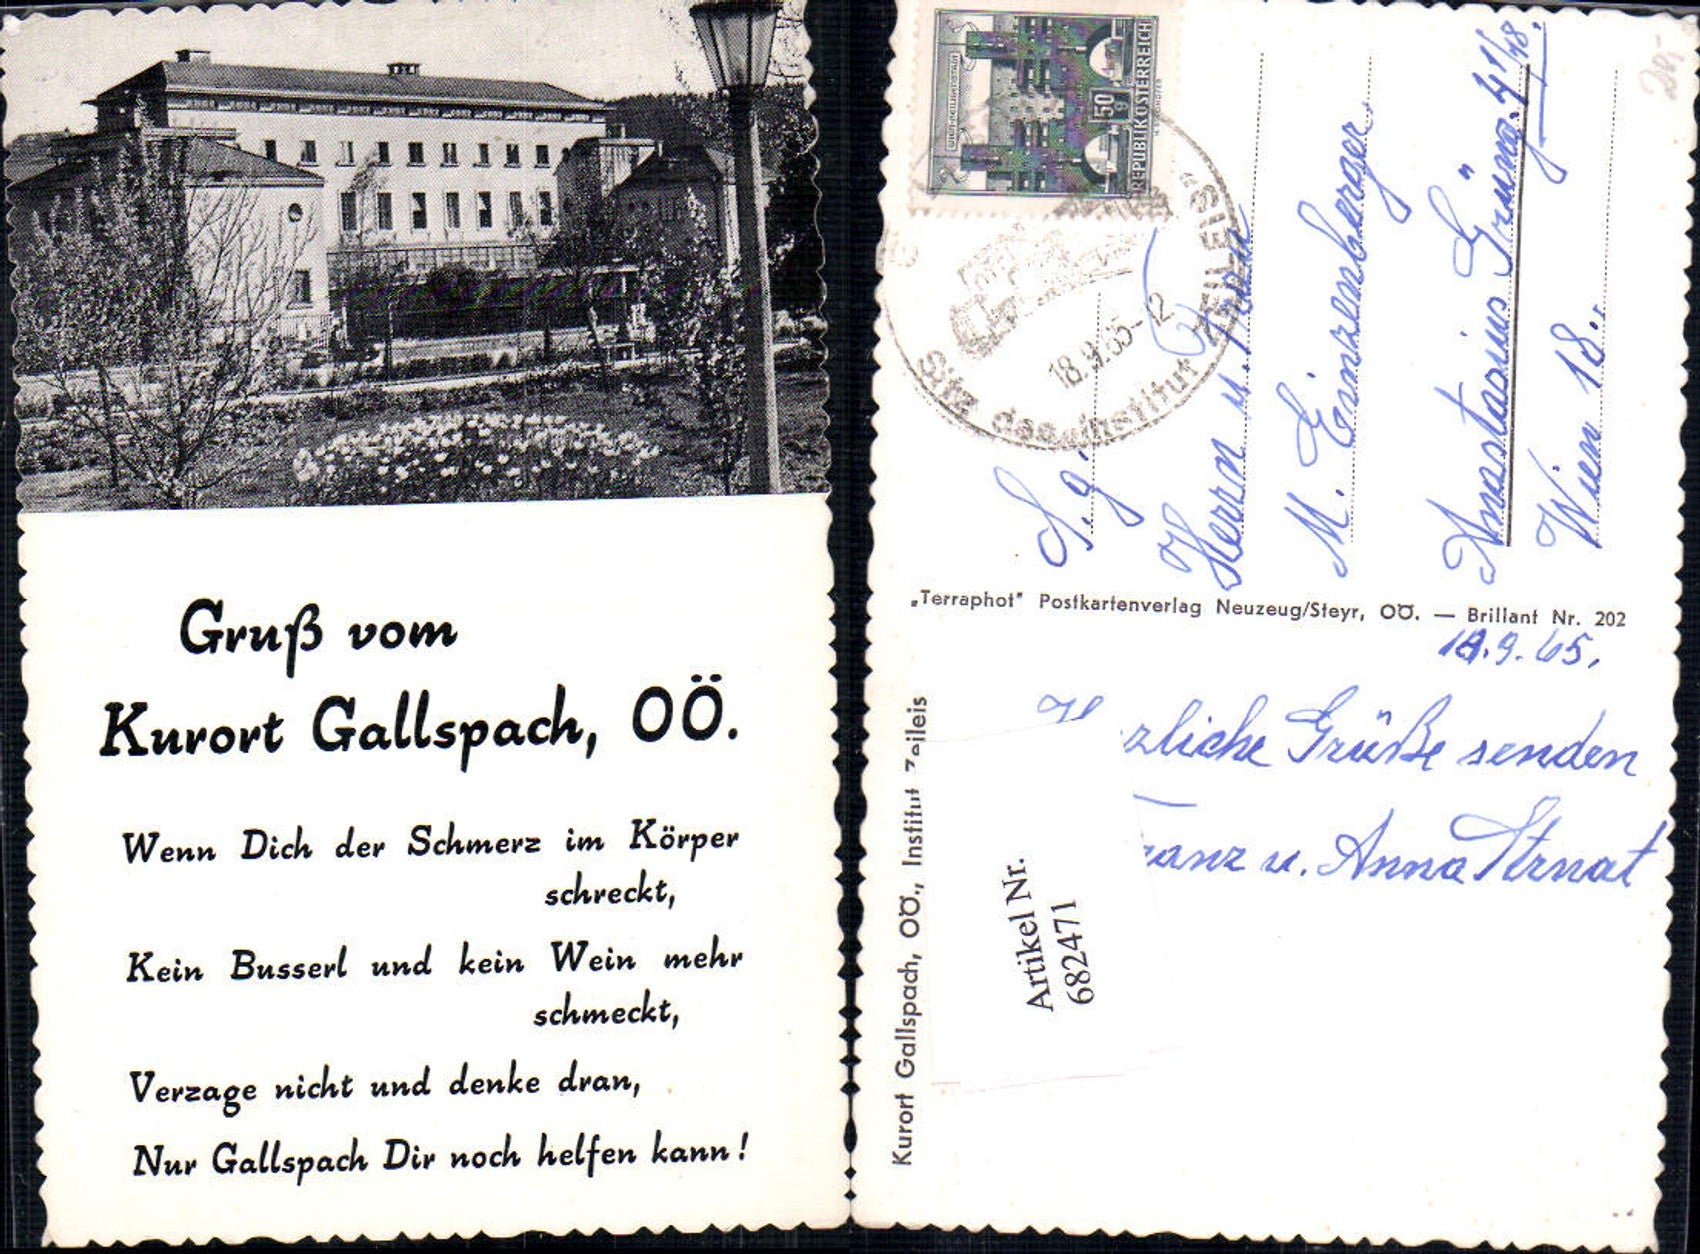 Gruß vom
Kurort Gallspach, OÖ.
Wenn Dich der Schmerz im Körper
schreckt,
Kein Busserl und kein Wein mehr
schmeckt,
Verzage nicht und denke dran,
Nur Gallspach Dir noch helfen kann!
50 g
REPUBLIK ÖSTERREICH
Sitz des Institut "ZEILEIS"
18.9.65-12
S. g.
Herrn u. Frau
M. Einzenberger
Anastasius Grüng. 41/18.
Wien 18..
20,-
„Terraphot" Postkartenverlag Neuzeug/Steyr, OÖ. — Brillant Nr. 202
18.9.65.
zliche Grüße senden
ranz u. Anna Strnat
Kurort Gallspach, OÖ., Institut Zeileis
Artikel Nr.
682471